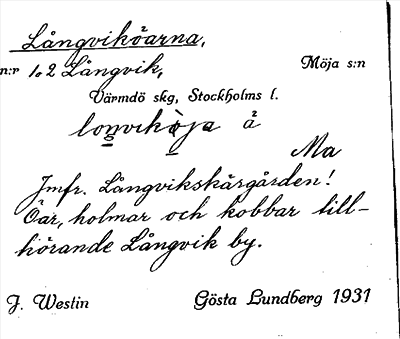 Långviköarna,
n:r 1o2 Långvik, Möja s:n
Värmdö skg, Stockholms l.
å
Ma
Jmfr. Långvikskärgården!
Öar, holmar och kobbar till-
hörande Långvik by.
J. Westin Gösta Lundberg 1931